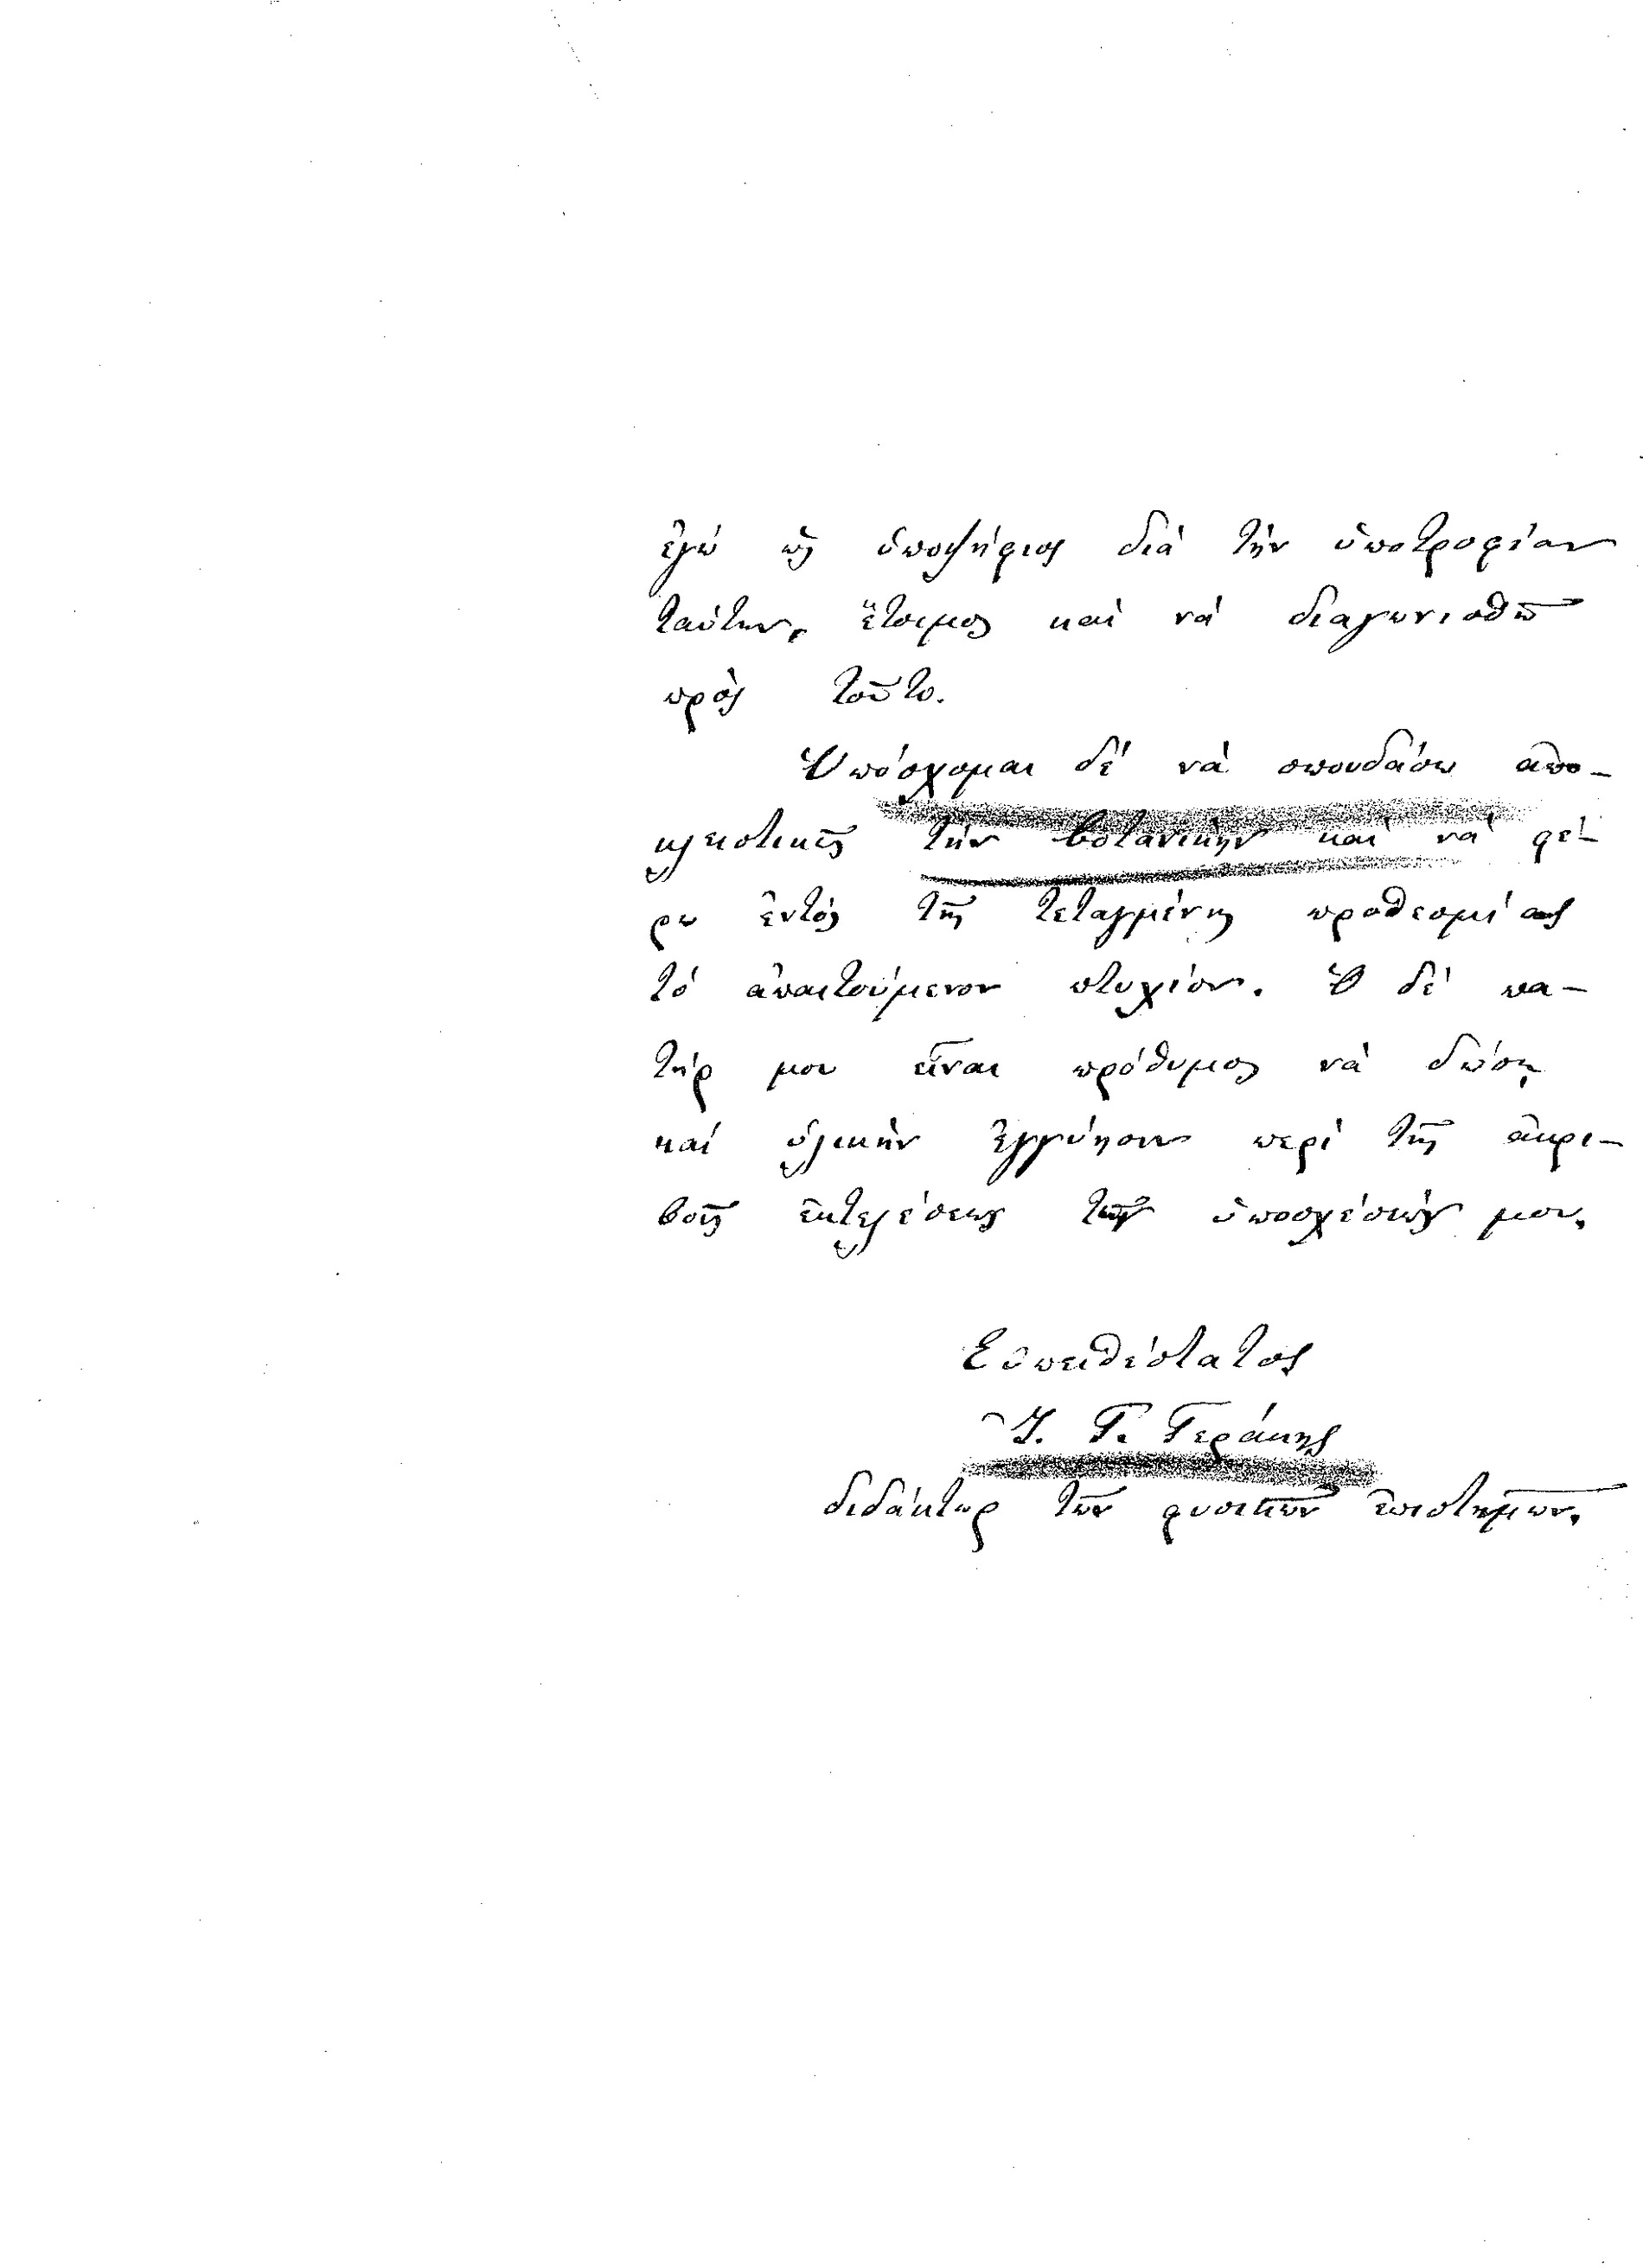 ἐγώ ὡς ὑποψήφιος διά τήν ὑποτροφίαν
ταύτην, ἕτοιμος καί νά διαγωνισθῶ
πρός τοῦτο.
Ὑπόσχομαι δέ νά σπουδάσω ἀπο-
κλειστικῶς τήν βοτανικήν καί νά φέ-
ρω ἐντός τῆς τεταγμένης προθεσμίας
τό ἀπαιτούμενον πτυχίον. Ὁ δέ πα-
τήρ μου εἶναι πρόθυμος νά δώσῃ
καί ὑλικήν ἐγγύησιν περί τῆς ἀκρι-
βοῦς ἐκτελέσεως τῶν ὑποσχέσεών μου.
Εὐπειθέστατος
Ἰ. Γ. Γεράκης
διδάκτωρ τῶν φυσικῶν ἐπιστημῶν.